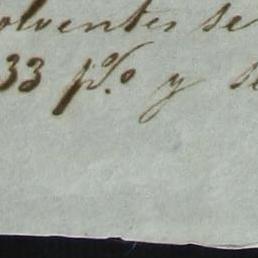 olventes se
33 p%. y se